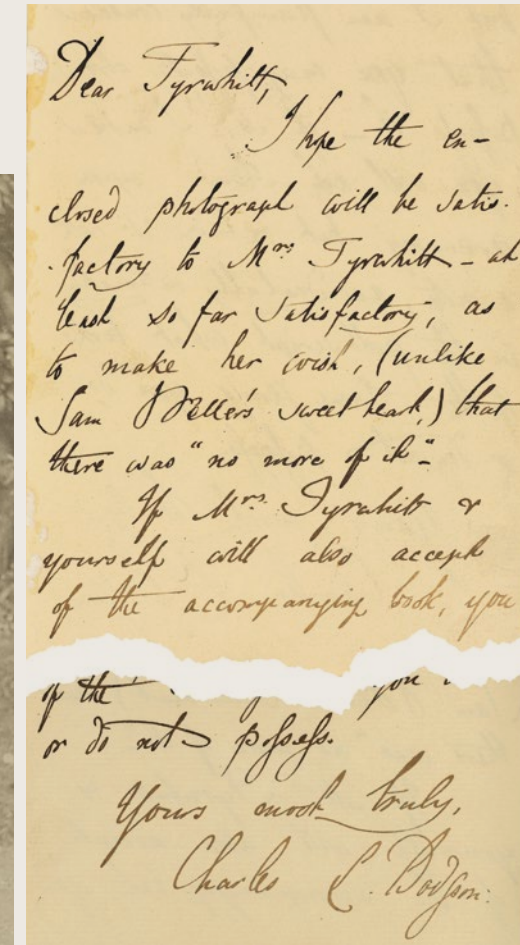 Dear Tyrwhitt,
I hope the en-
closed photograph will be satis-
factory to Mrs. Tyrwhitt - at
least so far satisfactory, as
to make her wish, (unlike
Sam Weller's sweetheart,) that
there was "no more of it".
If Mrs. Tyrwhitt &
yourself will also accept
of the accompanying book, you
of the you
or do not possess.
Yours most truly,
Charles L. Dodgson.